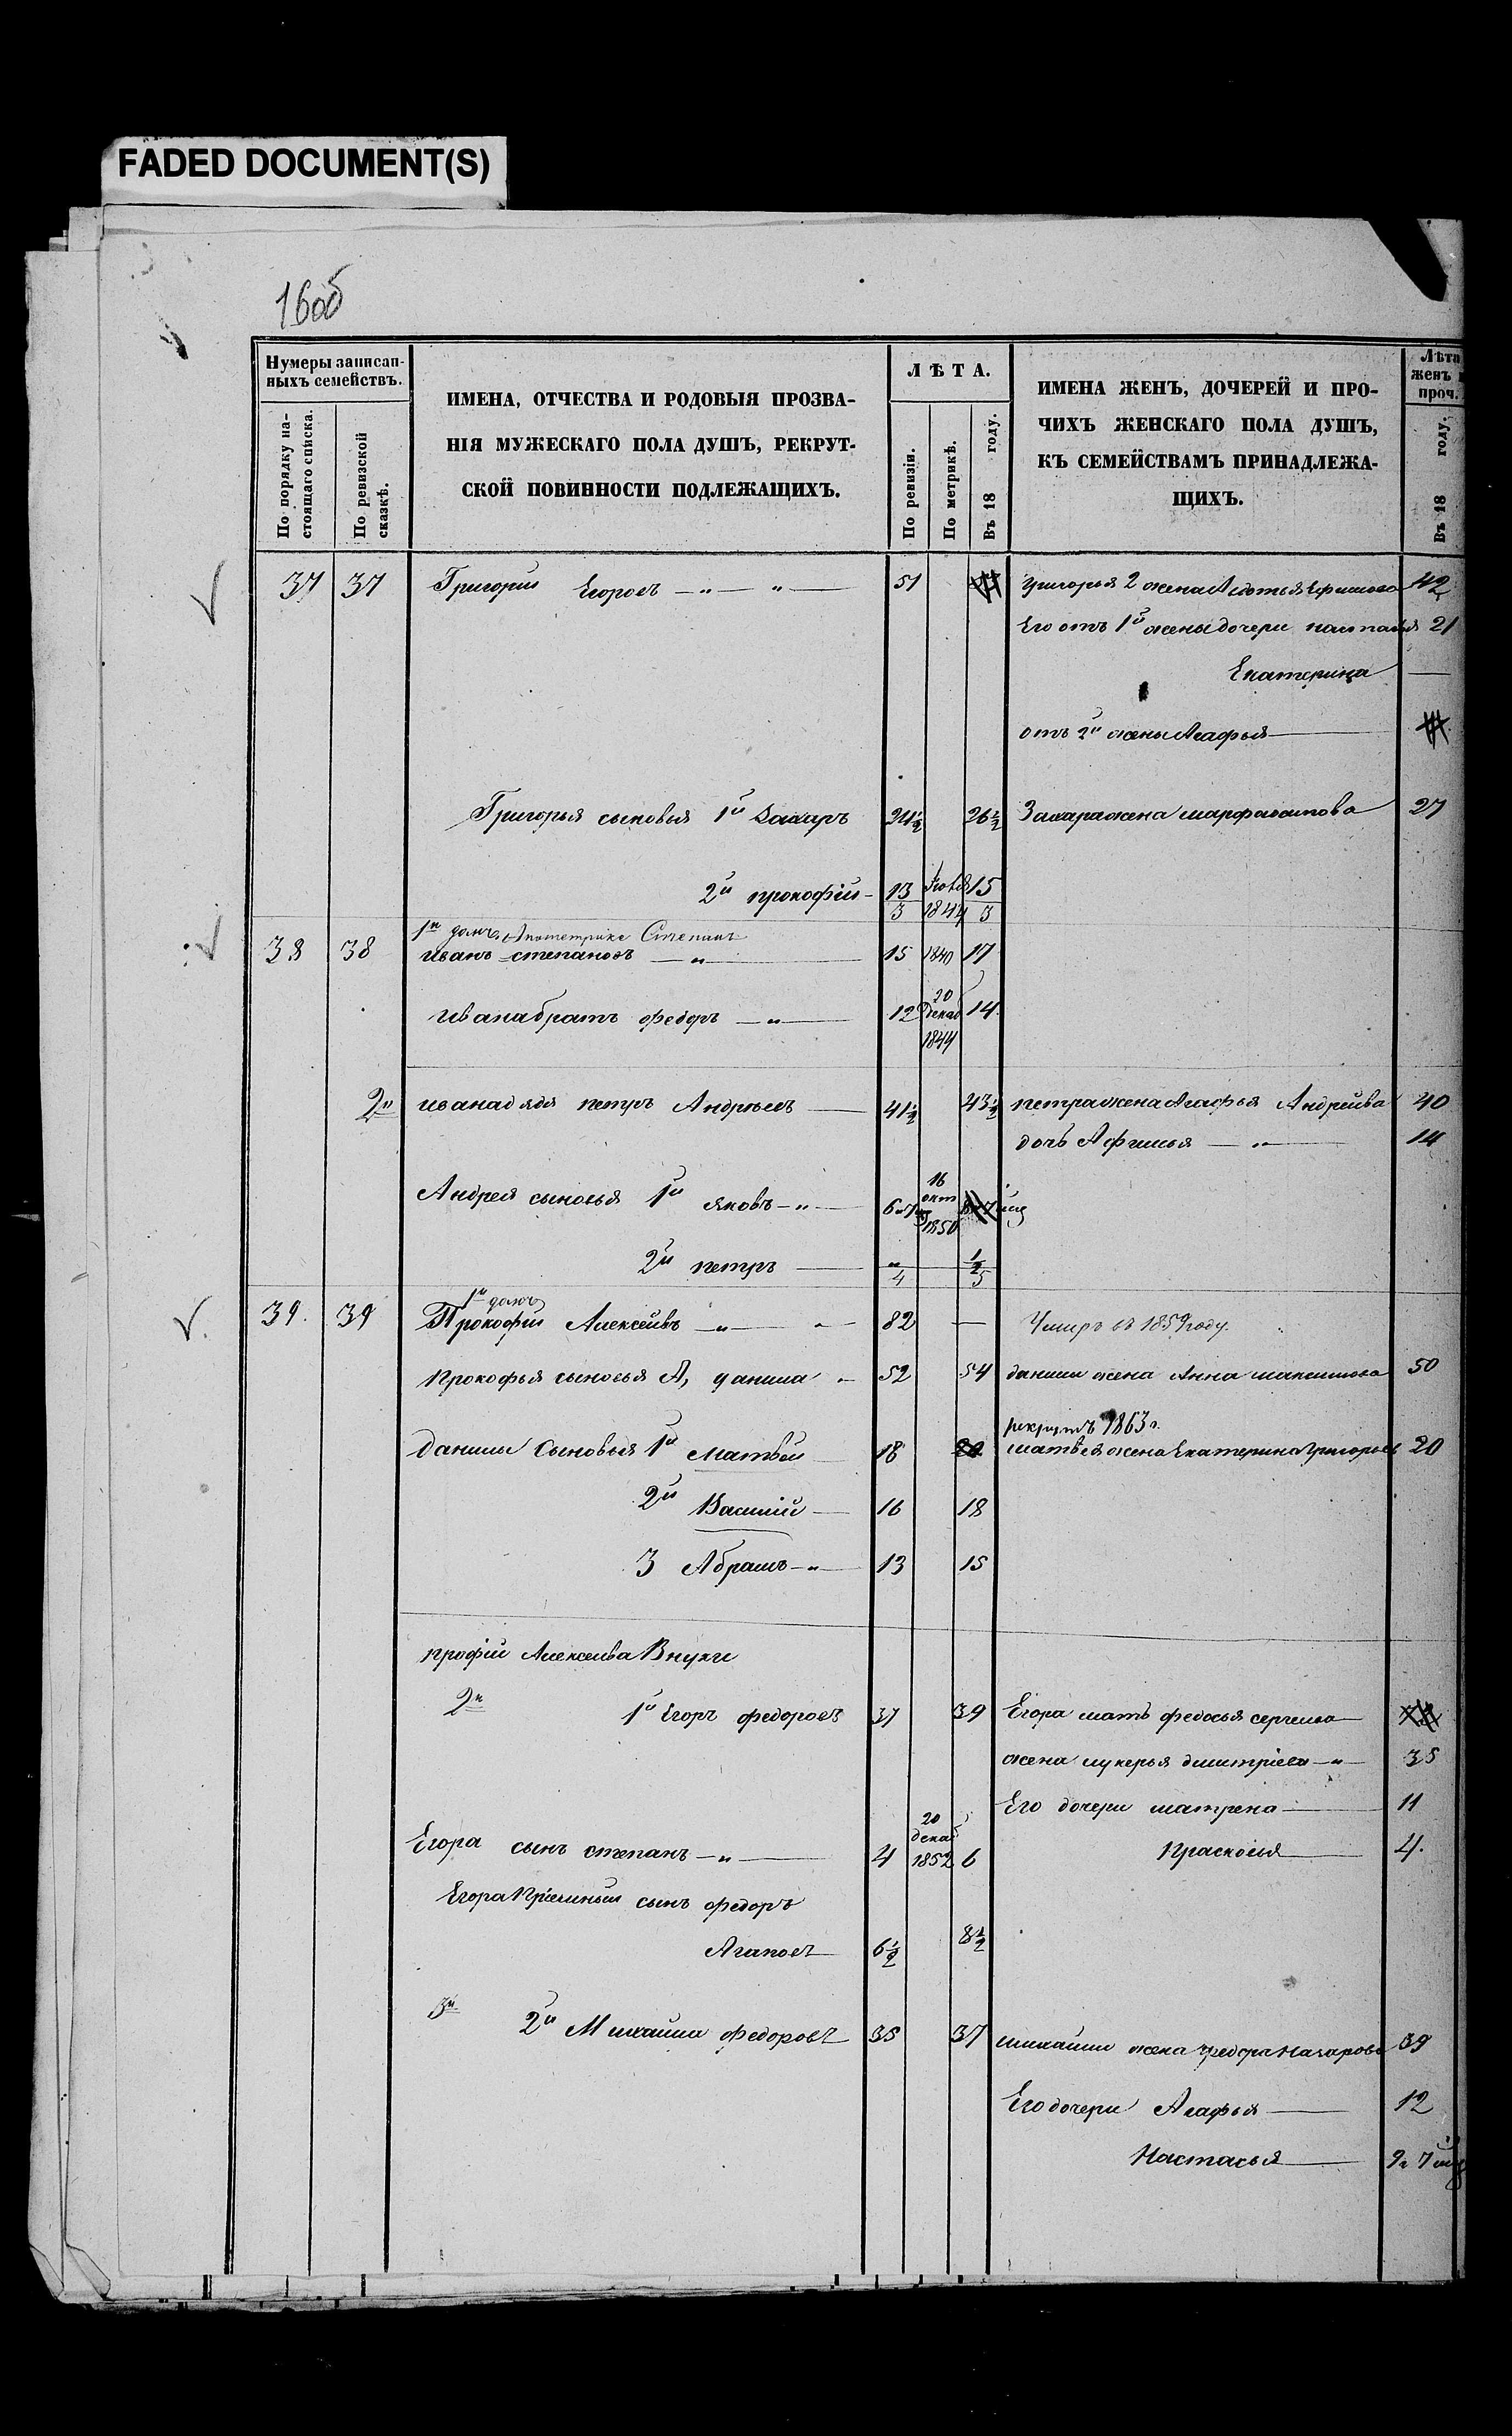 FADED DOCUMENT(S)
16об
Нумеры записан-
ныхъ семействъ.
По порядку на-
стоящаго списка.
По ревизской
сказкѣ.
ИМЕНА, ОТЧЕСТВА И РОДОВЫЯ ПРОЗВА-
НІЯ МУЖЕСКАГО ПОЛА ДУШЪ, РЕКРУТ-
СКОЙ ПОВИННОСТИ ПОДЛЕЖАЩИХЪ.
ЛѢТА.
По ревизіи.
По метрикѣ.
Въ 18 году.
ИМЕНА ЖЕНЪ, ДОЧЕРЕЙ И ПРО-
ЧИХЪ ЖЕНСКАГО ПОЛА ДУШЪ,
КЪ СЕМЕЙСТВАМЪ ПРИНАДЛЕЖА-
ЩИХЪ.
Лѣта
женъ
проч.
Въ 18 году.
37 37 Григорій Егоровъ — „ — „ — 51 Григорья 2 жена Авдотья Ефимова 42
Его отъ 1й жены дочери наталья 21
Екатерина —
отъ 2й жены Агафья —
Григорья сыновья 1й Захаръ 24½ 26½ Захара жена марфа 27
2й прокофій - 13 1844 15
3 3
1й домъ По метрике Степанъ
38 38 иванъ степановъ — „ — 15 1840 17
ивана братъ федоръ — „ — 12 20 декаб 1844 14
2й ивана дядя петръ Андреевъ — 41½ 43½ петра жена Агафья Андреива 40
дочь Афимья — „ — 14
Андрея сыновья 1й яковъ — „ — 16 окт 1850
2й петръ — „ ½
4 5
1й домъ
39. 39 Прокофій Алексеивъ — „ — 82 — Умиръ въ 1859 году.
прокофья сыновья А, данила - 52 54 данилы жена Анна максимова 50
рекрутъ 1863 г.
данилы сыновья 1й матвей 18 20 матвея жена Екатерина Григорьев 20
2й Василий — 16 18
3 Абрамъ — „ — 13 15
профій Алексеива Внуки
2й 1й Егоръ федоровъ 37 39 Егора мать федосья сергеива
жена лукерья дмитріева — „ 35
Его дочери матрена — 11
Егора сынъ степанъ — „ — 4 20 декаб 1852 6 прасковья — 4.
Егора Пріемный сынъ федоръ
Агаповъ 6½ 8½
3й 2й Михаила федоровъ 35 37 михаилы жена федора Назарова 39
Его дочери Агафья — 12
Настасья — 9 и 7 мц